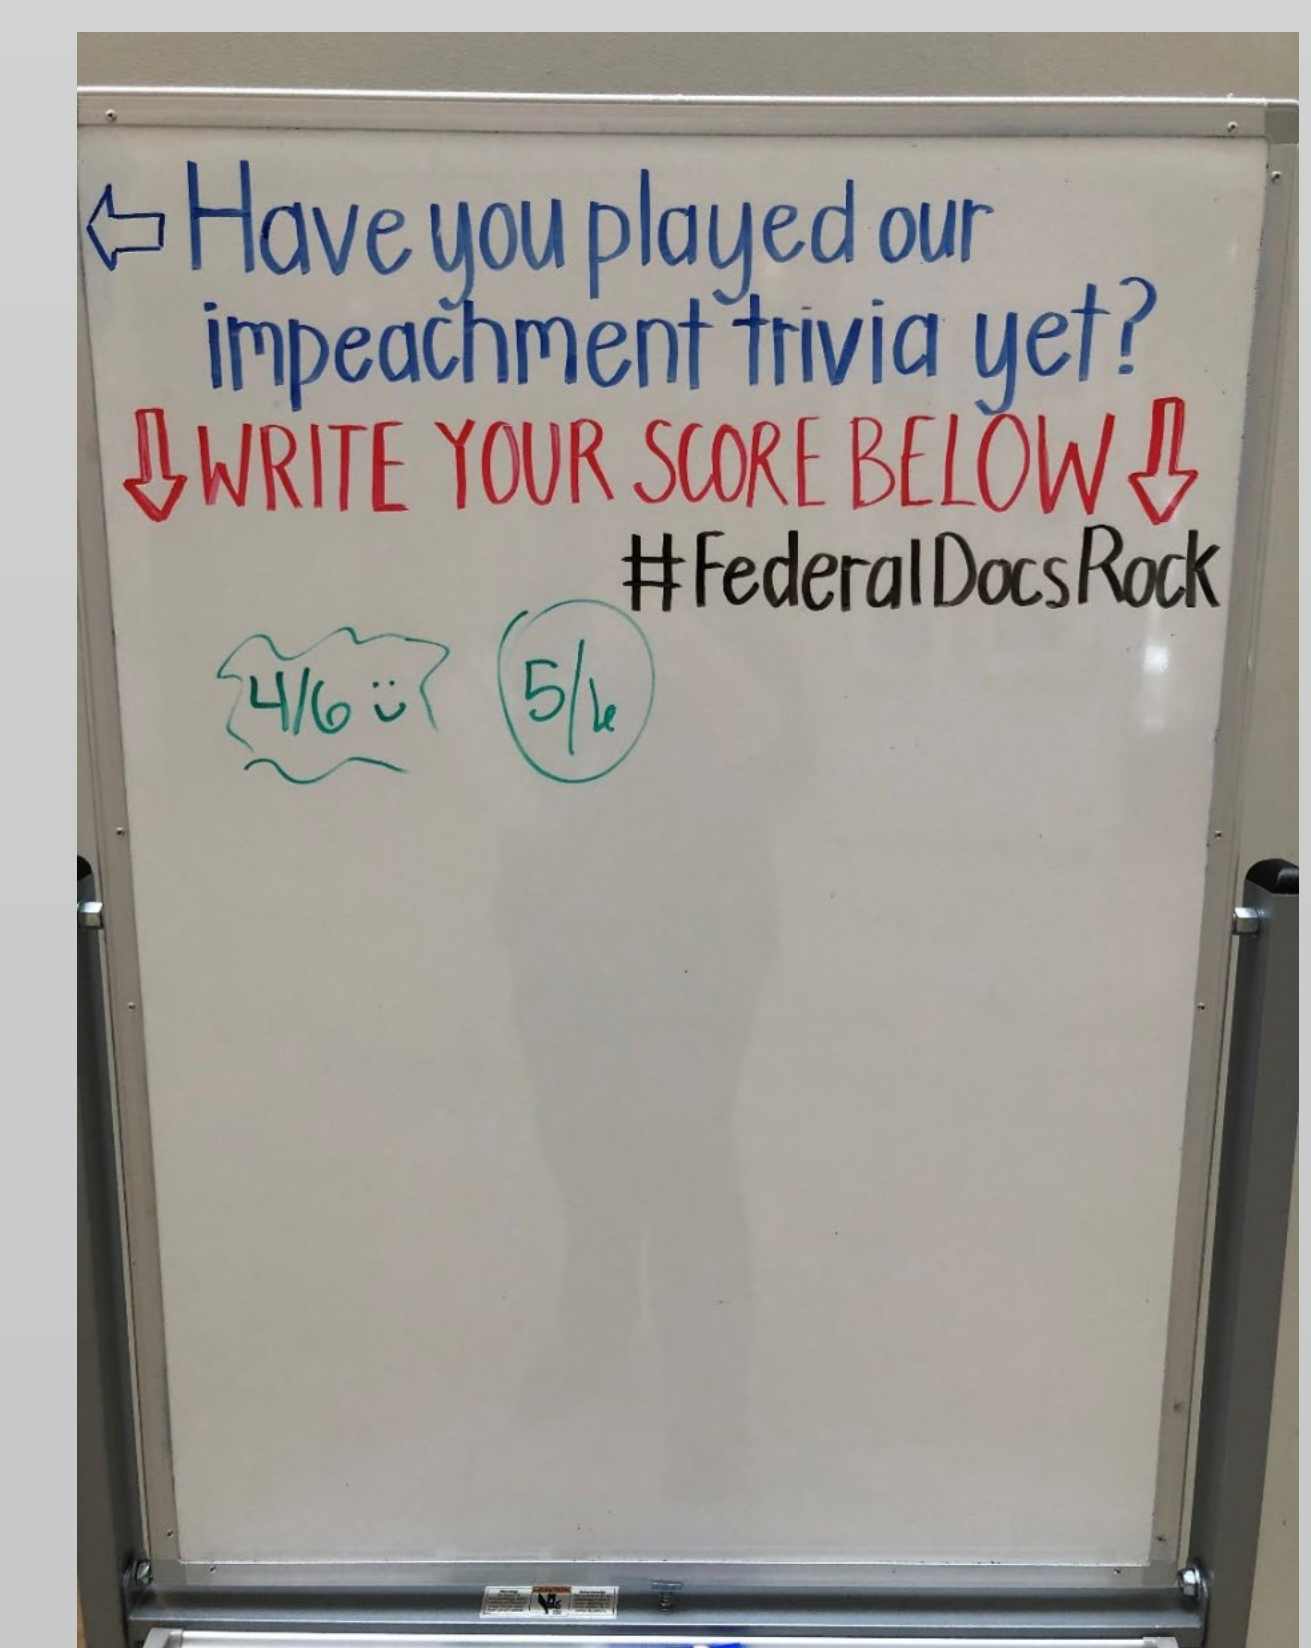 Have you played our
impeachment trivia yet?
WRITE YOUR SCORE BELOW
#FederalDocsRock
4/6 5/6